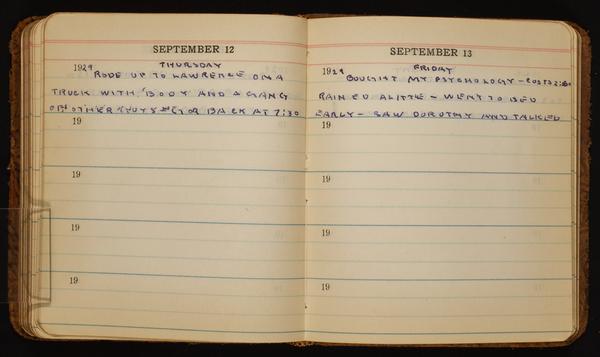 SEPTEMBER 12
THURSDAY
1929 RODE UP TO LAWRENCE ON A
TRUCK WITH BODY AND A GANG
OF OTHER GUYS GOT BACK AT 7:30
19
19
19
19
SEPTEMBER 13
FRIDAY
1929 BOUGHT MY PSYCHOLOGY - COSTS 2:60
RAINED A LITTLE - WENT TO BED
EARLY - SAW DOROTHY AND TALKED
19
19
19
19